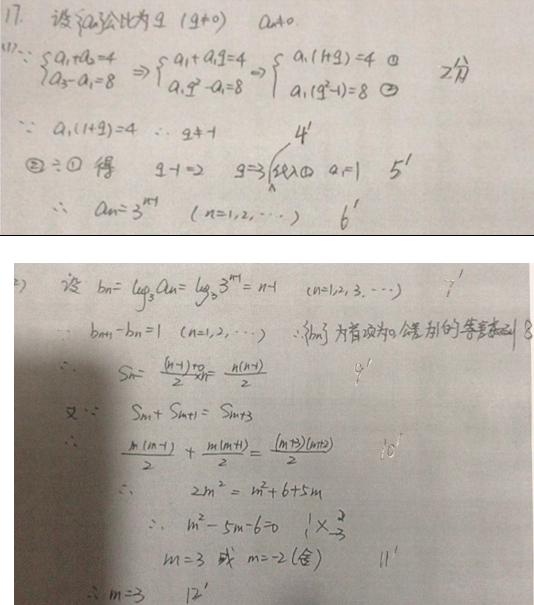 17. 设{an}公比为q (q≠0) a₁≠0.
(1) ∵ { a₁+a₂=4 a₃-a₁=8 ⇒ { a₁+a₁q=4 a₁q²-a₁=8 ⇒ { a₁(1+q)=4 ① a₁(q²-1)=8 ② 2分
∵ a₁(1+q)=4 ∴ q≠-1 4'
②÷① 得 q-1=2 q=3 代入① a₁=1 5'
∴ an=3ⁿ⁻¹ (n=1,2,…) 6'
2) 设 bn=log₃an=log₃3ⁿ⁻¹=n-1 (n=1,2,3,…) 7'
∵ bn+1-bn=1 (n=1,2,…) ∴{bn}为首项为0,公差为1的等差数列 8
∴ Sn=((n-1)+0)/2×n=n(n-1)/2 9'
又∵ Sm+Sm+1=Sm+3
∴ m(m-1)/2+m(m+1)/2=(m+3)(m+2)/2 10'
∴ 2m²=m²+6+5m
∴ m²-5m-6=0 1 1 × 2 -3
m=3 或 m=-2(舍) 11'
∴ m=3 12'